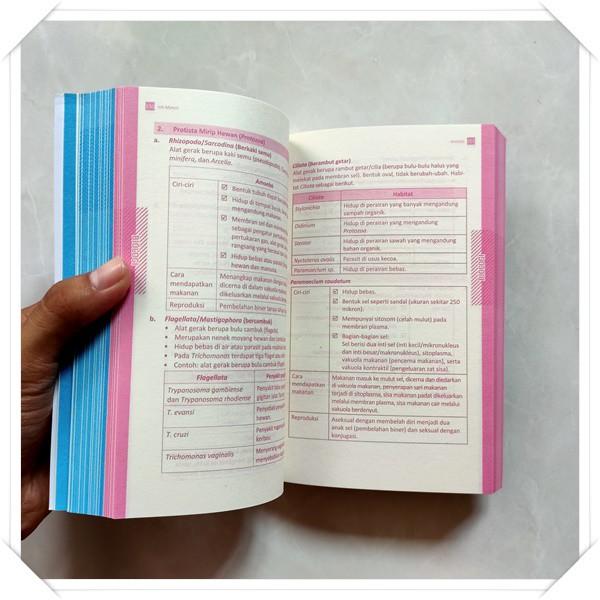 Inti Materi
2. Protista Mirip Hewan (Protozoa)
a. Rhizopoda/Sarcodina (Berkaki semu)
Alat gerak berupa kaki semu (pseudopodia).
minifera, dan Arcella.
Amoeba
Ciri-ciri
Bentuk tubuh dapat
Hidup di tempat becek,
mengandung makanan.
Membran sel
sebagai pengatur
pertukaran gas, alat
rangsang yang berasal dari
Hidup bebas atau parasit
hewan dan manusia.
Cara
mendapatkan
makanan
Menangkap makanan dengan
dicerna di dalam vakuola
dikeluarkan melalui vakuola
Reproduksi
Pembelahan biner tanpa
b. Flagellata/Mastigophora (bercambuk)
• Alat gerak berupa bulu cambuk (flagela).
• Merupakan nenek moyang hewan dan
• Hidup bebas di air atau parasit pada
• Pada Trichomonas terdapat tiga flagel atau
• Contoh: alat gerak berupa bulu cambuk
Flagellata
Trypanosoma gambiense
dan Trypanosoma rhodiense
Penyakit
gigitan lalat
T. evansi
Penyakit
hewan
T. cruzi
Penyakit
kerbau
Trichomonas vaginalis
Menyerang
menyebabkan
Ciliata (Berambut getar)
Alat gerak berupa rambut getar/cilia (berupa bulu-bulu halus yang
melekat pada membran sel). Bentuk oval, tidak berubah-ubah. Habi-
tat Ciliata sebagai berikut.
Ciliata Habitat
Stylonichia Hidup di perairan yang banyak mengandung
sampah organik.
Didinium Hidup di perairan yang mengandung
Protozoa.
Stentor Hidup di perairan sawah yang mengandung
bahan organik.
Nyctoterus ovalis Parasit di usus kecoa.
Paramaecium sp. Hidup di perairan bebas.
Paramaecium caudatum
Ciri-ciri
Hidup bebas.
Bentuk sel seperti sandal (ukuran sekitar 250
mikron).
Mempunyai sitosom (celah mulut) pada
membran plasma.
Bagian-bagian sel:
Sel berisi dua inti sel (inti kecil/mikronukleus
dan inti besar/makronukleus), sitoplasma,
vakuola makanan (pencerna makanan), serta
vakuola kontraktil (pengeluaran zat sisa).
Cara
mendapatkan
makanan
Makanan masuk ke mulut sel, dicerna dan diedarkan
di vakuola makanan, penyerapan sari makanan
terjadi di sitoplasma, sisa makanan padat dikeluarkan
melalui membran plasma, sisa makanan cair melalui
vakuola berdenyut.
Reproduksi
Aseksual dengan membelah diri menjadi dua
anak sel (pembelahan biner) dan seksual dengan
konjugasi.